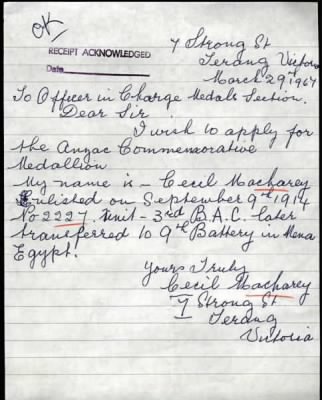 OK
7 Strong St
RECEIPT ACKNOWLEDGED
Terang Victoria
Date
March 29th 1967
To Officer in Charge Medals Section.
Dear Sir.
I wish to apply for
the Anzac Commemorative
Medallion
My name is - Cecil Macharey
Enlisted on September 9th 1914
No 2227. Unit - 3rd B.A.C. later
transferred to 9th Battery in Mena
Egypt.
Yours Truly
Cecil Macharey
7 Strong St
Terang
Victoria